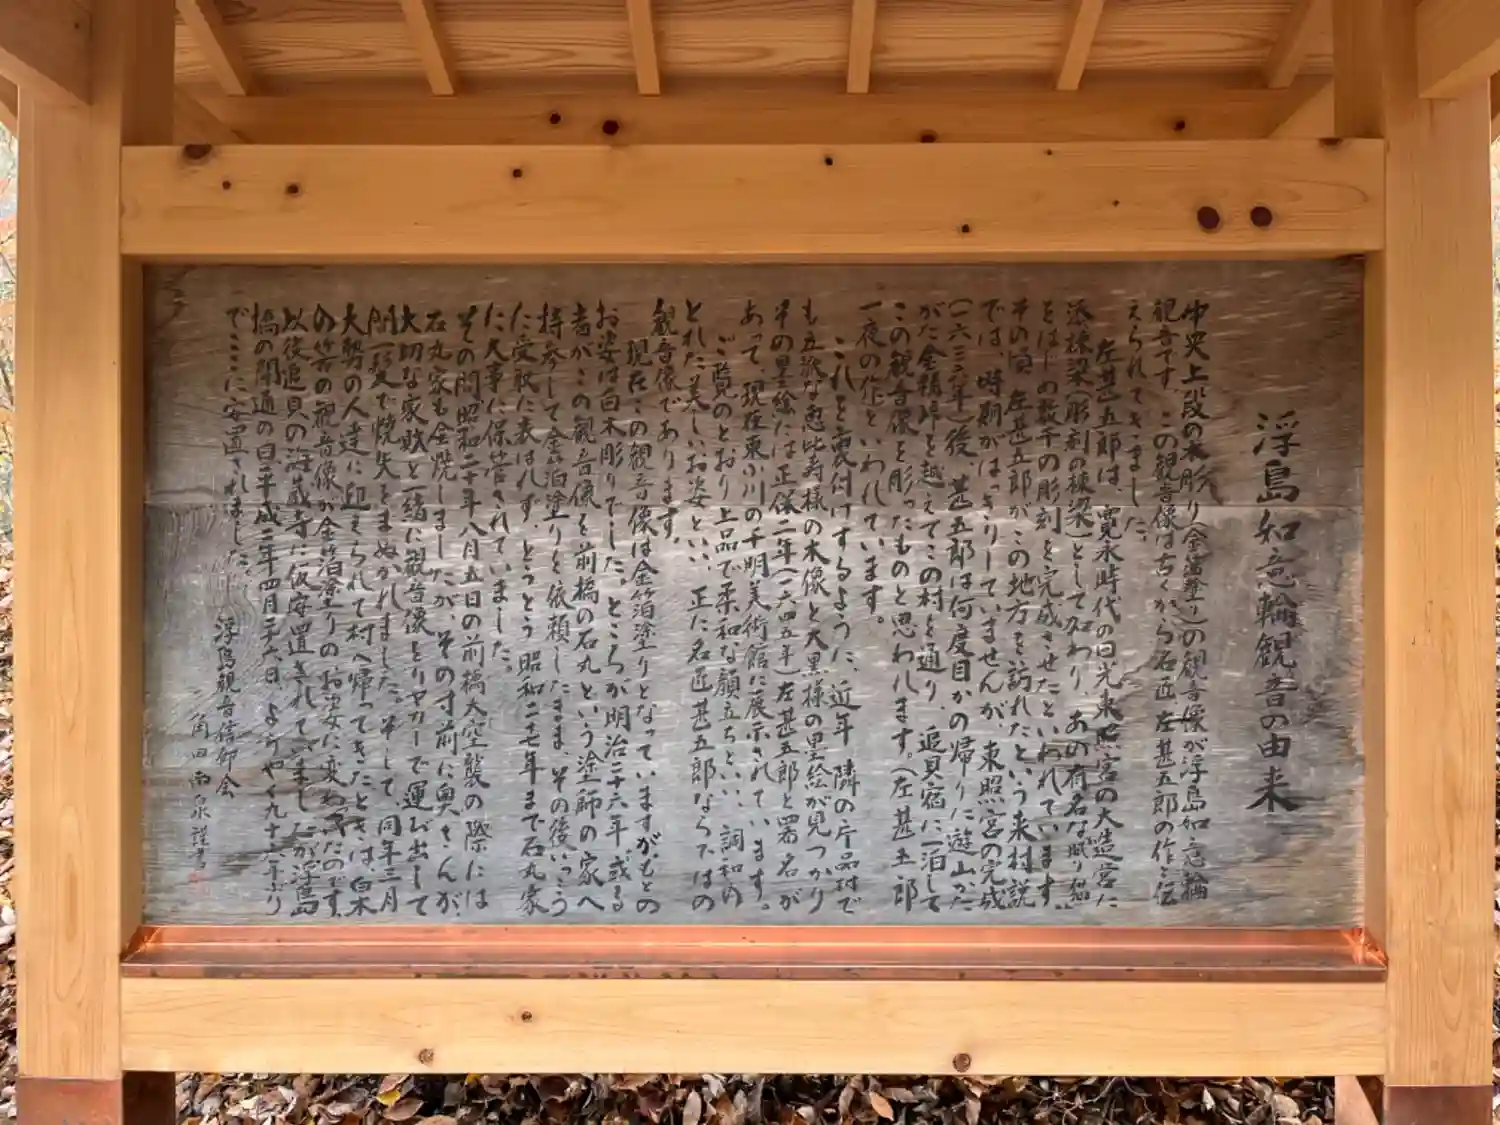 浮島如意輪観音の由来
中央上段の木彫り(金箔塗り)の観音像が浮島如意輪
観音です。この観音像は古くから石匠左甚五郎の作と伝
えられてきました。
左甚五郎は、寛永時代の日光東照宮の大造営に
添棟梁(彫刻の棟梁)として加わり、あの有名な眠り猫
をはじめ数千の彫刻を完成させたといわれています。
その頃、左甚五郎がこの地方を訪れたという来村説
では、時期がはっきりしていませんが、東照宮の完成
(一六三六年)後、甚五郎は何度目かの帰りに遊山かた
がた金精峠を越えてこの村を通り、追貝宿に一泊して
この観音像を彫ったものと思われます。(左甚五郎
一夜の作といわれています。
これを裏付けするように、近年隣の片品村で
も立派な恵比寿様の木像と大黒様の墨絵が見つかり
その墨絵には正保二年(一六四五年)左甚五郎と署名が
あって、現在東小川の千明美術館に展示されています。
ご覧のとおり上品で柔和な顔立ちといい、調和の
とれた美しいお姿といい、正に名匠甚五郎ならではの
観音像であります。
現在この観音像は金箔塗りとなっていますが、もとの
お姿は白木彫りでした。ところが明治二十六年、或る
者がこの観音像を前橋の石丸という塗師の家へ
持参して金箔塗りを依頼したまま、その後いっこう
に受取に表はれず、とうとう昭和二十七年まで石丸家
に大事に保管されていました。
その間、昭和二十年八月五日の前橋大空襲の際には
石丸家も全焼しましたが、その寸前に奥さんが、
大切な家財と一緒に観音像をリヤカーで運び出して
間一髪で焼失をまぬかれました。そして、同年三月
大勢の人達に迎えられて村へ帰ってきたときは、白木
の筈の観音像が金箔塗りのお姿に変わってたのです。
以後追貝の海蔵寺に仮安置されていましたが浮島
橋の開通の日平成二年四月二十六日、ようやく九十六年ぶり
でここに安置されました。
浮島観音信仰会
角田南泉謹書